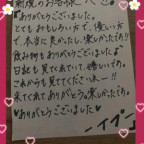 新規のお客様へ♡
♥ありがとうございました。
とてもおもしろい方で、優しい方
で、本当に良かったし、楽しかたち!!
飲み物もありがとうございました♪
日記も見てくれていて、嬉しいです。
これからも見てくださいねー!!
来てくれてありがとう。楽しかたち。
♥ありがとうございました♥